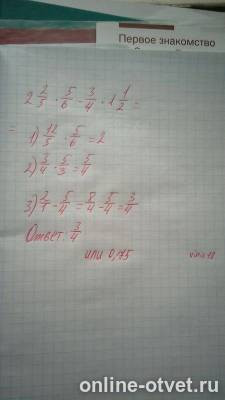 Первое знакомство
2 2/5 · 5/6 - 3/4 · 1 1/2 =
= 1) 12/5 · 5/6 = 2
2) 3/4 · 5/3 = 5/4
3) 2/1 - 5/4 = 8/4 - 5/4 = 3/4
Ответ: 3/4
или 0,75
online-otvet.ru